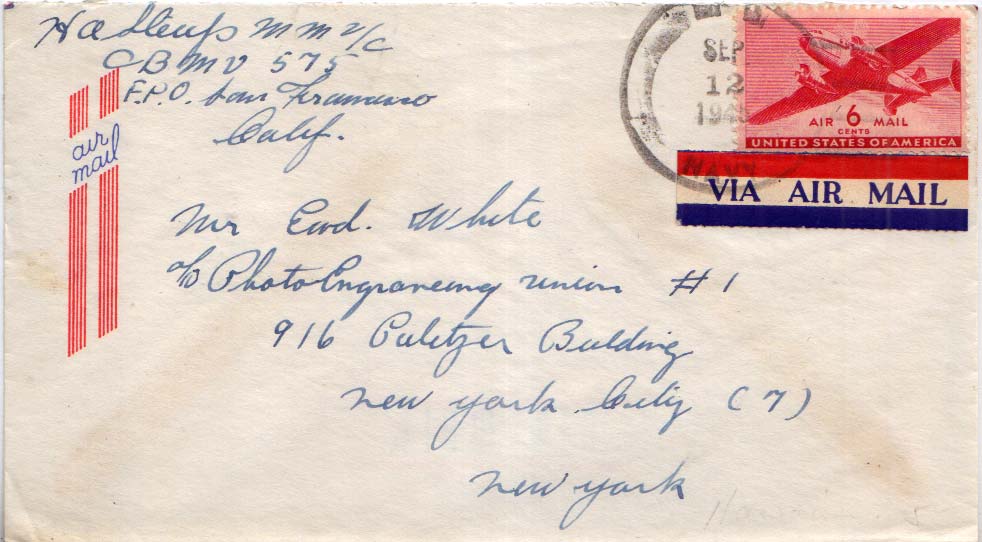 MM 2/C
CBMU 575
F.P.O. San Francisco
Calif.
air
mail
SEP
12
NAVY
AIR 6 MAIL
CENTS
UNITED STATES OF AMERICA
VIA AIR MAIL
Mr Ewd. White
c/o Photo Engraveing Union #1
916 Pulitzer Building
New York City (7)
New York